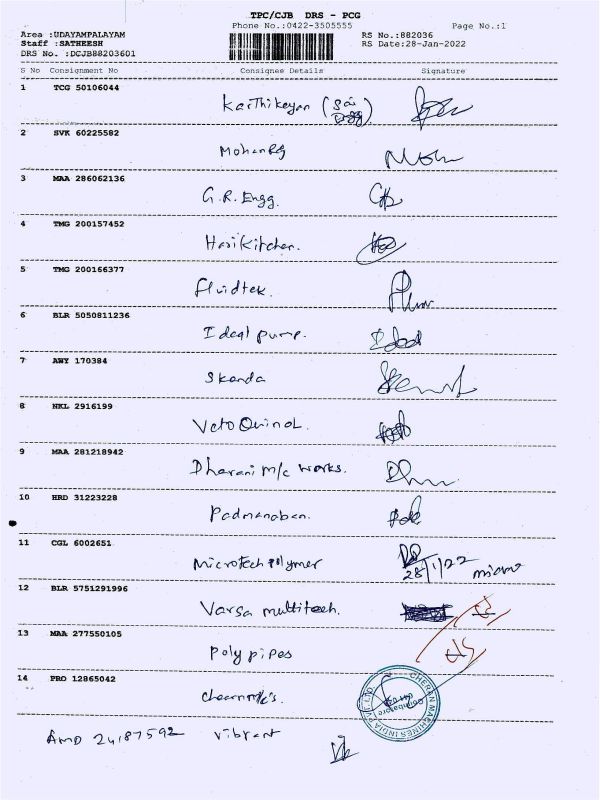 TPC/CJB DRS - PCG
Phone No.:0422-3505555 Page No.:1
Area :UDAYAMPALAYAM RS No.:882036
Staff :SATHEESH RS Date:28-Jan-2022
DRS No. :DCJB88203601
S No Consignment No Consignee Details Signature
1 TCG 50106044
Karthikeyan (Sai
2 SVK 60225582
Mohan
3 MAA 286062136
G.R. Engg.
4 TMG 200157452
Hari Kitchen.
5 TMG 200166377
fluidtek.
6 BLR 5050811236
Ideal pump.
7 AWY 170384
Skanda
8 NKL 2916199
Veto Quinol.
9 MAA 281218942
Dharani M/c works.
10 HRD 31223228
Padmanaban.
11 CGL 6002651
Microtech polymer 28/1/22 micro
12 BLR 5751291996
Varsa multitech.
13 MAA 277550105
Poly pipes
14 PRO 12865042
CHERAN MACHINES INDIA PVT. LTD.
Coimbatore
AMD 24187592 Vibrant